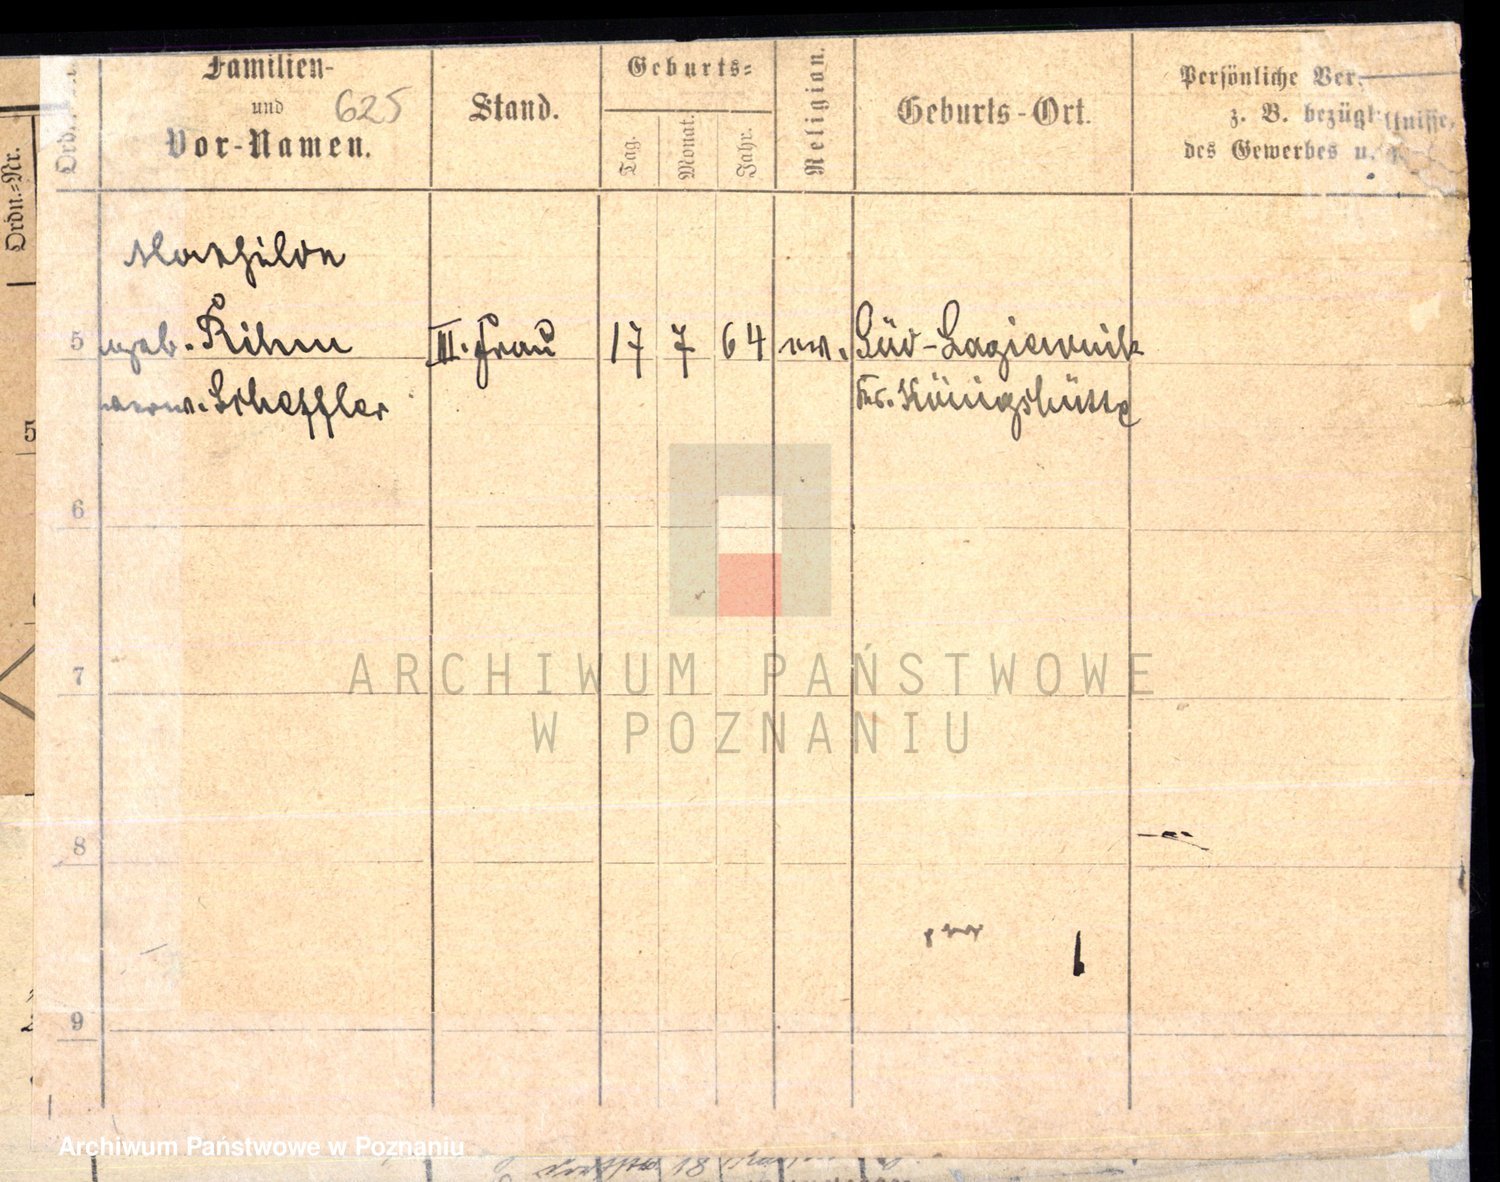 Familien-
und 625
Vor-Namen.
Stand.
Geburts-
Tag.
Monat.
Jahr.
Religion.
Geburts-Ort.
Persönliche Ver-
z. B. bezügl
ltnisse,
des Gewerbes u.
Ordn.-Nr.
Mathilde
5 geb. Kihm III. Frau 17 7 64 ev. Süd-Lagiewnik
verw. Scheffler Krs. Königshütte
5
6
7
8
9
ARCHIWUM PAŃSTWOWE
W POZNANIU
Archiwum Państwowe w Poznaniu